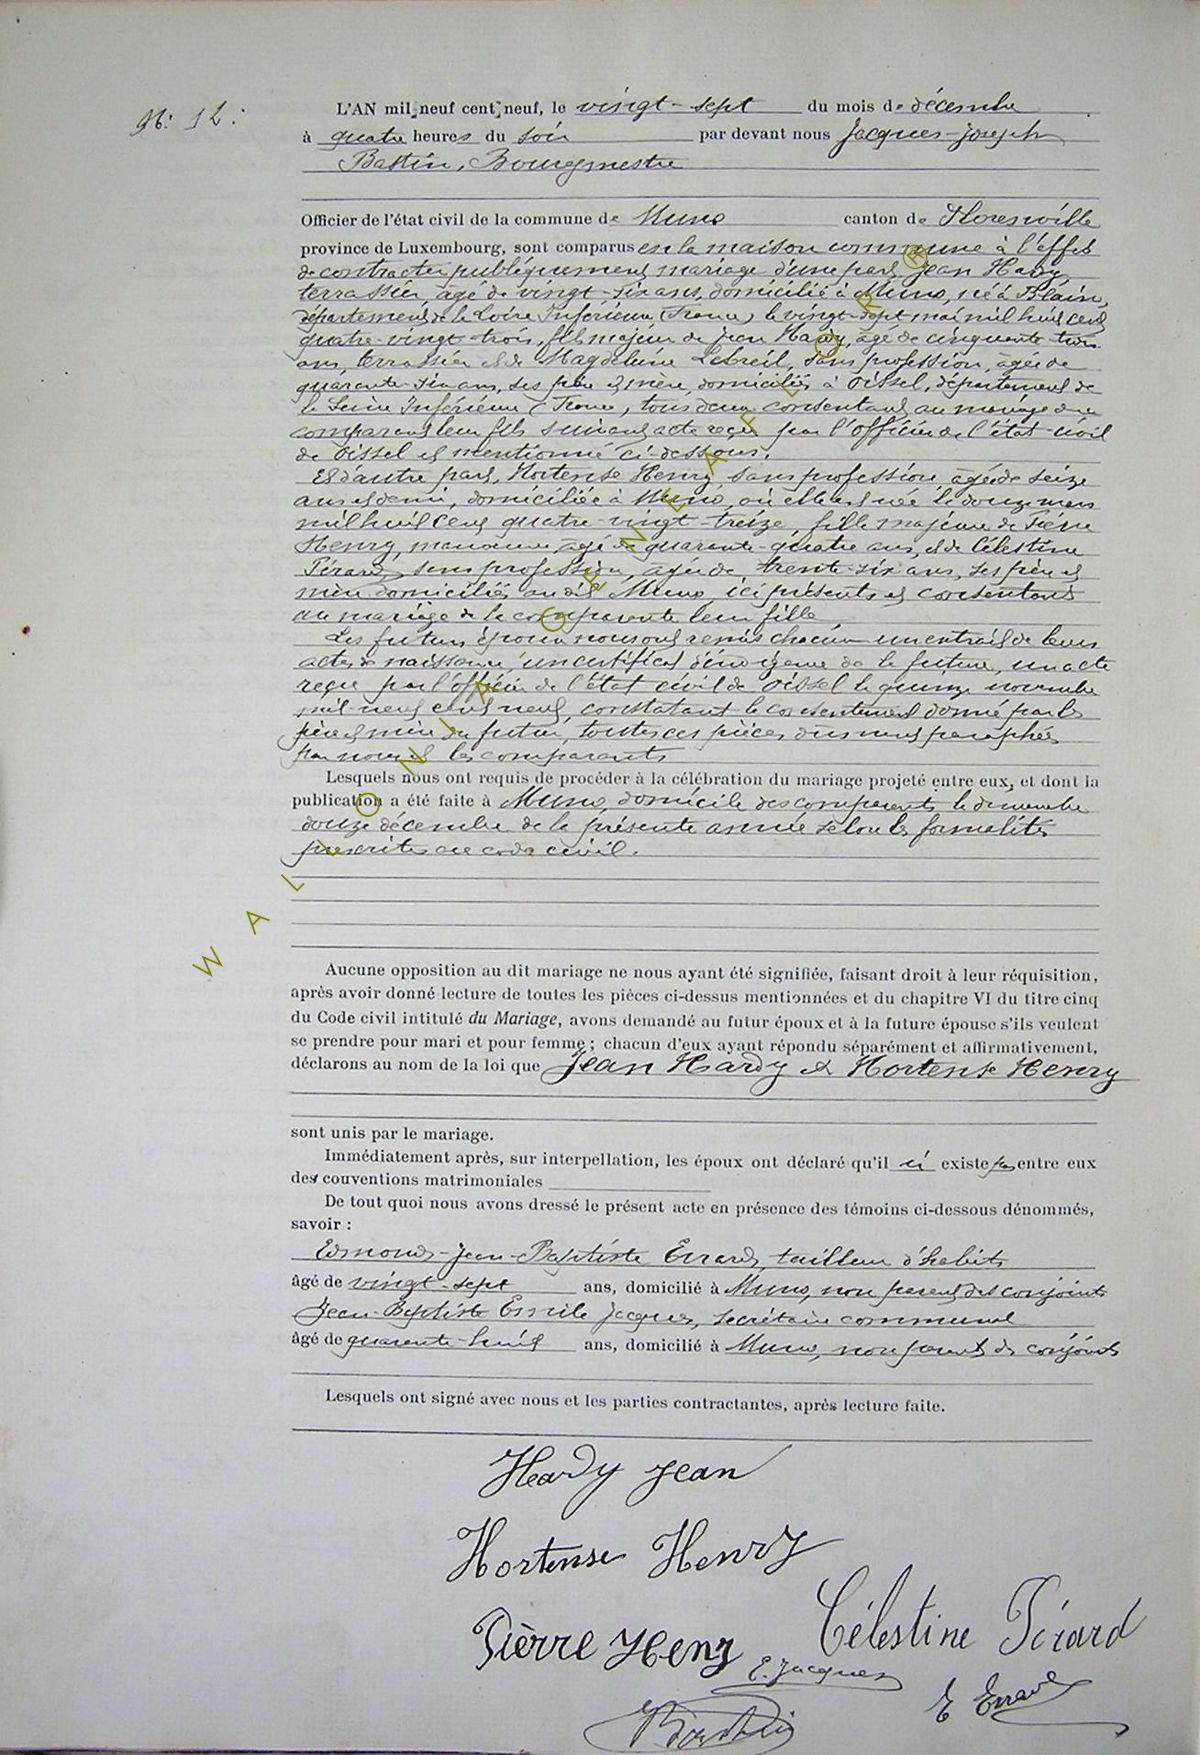 N: 12:
L'AN mil neuf cent neuf, le vingt-sept du mois de décembre
à quatre heures du soir par devant nous Jacques-Joseph
Bastin, Bourgmestre
Officier de l'état civil de la commune de Muno canton de Florenville
province de Luxembourg, sont comparus en la maison commune à l'effet
de contracter publiquement mariage d'une part, Jean Hardy,
terrassier, âgé de vingt-six ans, domicilié à Muno, né à Blain,
département de la Loire Inférieure (France) le vingt-sept mai mil huit cent
quatre-vingt-trois, fils majeur de Jean Hardy, âgé de cinquante-trois
ans, terrassier et de Magdeleine Lebreil, sans profession, âgée de
quarante-six ans, ses père et mère, domiciliés à Oissel, département de
la Seine Inférieure (France, tous deux consentant au mariage du
comparant leur fils suivant acte reçu par l'officier de l'état-civil
de Oissel et mentionné ci-dessous.
Et d'autre part, Hortense Henry, sans profession, âgée de seize
ans et demi, domiciliée à Muno, où elle est née le douze mars
mil huit cent quatre-vingt-treize, fille majeure de Pierre
Henry, manœuvre, âgé de quarante-quatre ans, et de Célestine
Pérard, sans profession, âgée de trente-six ans, ses père et
mère domiciliés audit Muno, ici présents et consentants
au mariage de la comparante leur fille
Les futurs époux nous ont remis chacun un extrait de leurs
actes de naissance, un certificat d'indigence de la future, un acte
reçu par l'officier de l'état civil de Oissel le quinze novembre
mil-neuf cent neuf, constatant le consentement donné par les
père et mère du futur, toutes ces pièces dûment paraphées
par nous et les comparants
Lesquels nous ont requis de procéder à la célébration du mariage projeté entre eux, et dont la
publication a été faite à Muno, domicile des comparants le dimanche
douze décembre de la présente année selon les formalités
prescrites au code civil.
Aucune opposition au dit mariage ne nous ayant été signifiée, faisant droit à leur réquisition,
après avoir donné lecture de toutes les pièces ci-dessus mentionnées et du chapitre VI du titre cinq
du Code civil intitulé du Mariage, avons demandé au futur époux et à la future épouse s'ils veulent
se prendre pour mari et pour femme ; chacun d'eux ayant répondu séparément et affirmativement,
déclarons au nom de la loi que Jean Hardy et Hortense Henry
sont unis par le mariage.
Immédiatement après, sur interpellation, les époux ont déclaré qu'il n' existe pas entre eux
de conventions matrimoniales
De tout quoi nous avons dressé le présent acte en présence des témoins ci-dessous dénommés,
savoir :
Edmond-Jean-Baptiste Errard, tailleur d'habits
âgé de vingt-sept ans, domicilié à Muno, non parent des conjoints
Jean-Baptiste Emile Jacques, secrétaire communal
âgé de quarante-huit ans, domicilié à Muno, non parent des conjoints
Lesquels ont signé avec nous et les parties contractantes, après lecture faite.
Hardy Jean
Hortense Henry
Pièrre Henry Célestine Pérard
E. Jacques E Errard
Bastin
WALLONIA GENEAFLOR ®